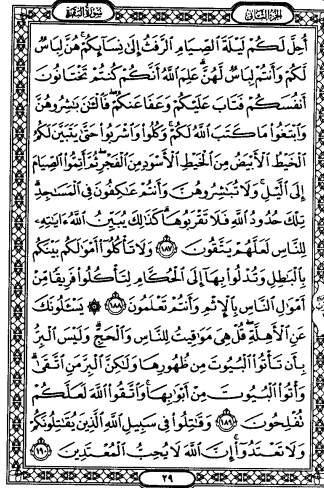 الجزء الثاني
سورة البقرة
أُحِلَّ لَكُمْ لَيْلَةَ ٱلصِّيَامِ ٱلرَّفَثُ إِلَىٰ نِسَآئِكُمْ ۚ هُنَّ لِبَاسٌ
لَّكُمْ وَأَنتُمْ لِبَاسٌ لَّهُنَّ ۗ عَلِمَ ٱللَّهُ أَنَّكُمْ كُنتُمْ تَخْتَانُونَ
أَنفُسَكُمْ فَتَابَ عَلَيْكُمْ وَعَفَا عَنكُمْ ۖ فَٱلْـَٰٔنَ بَـٰشِرُوهُنَّ
وَٱبْتَغُوا۟ مَا كَتَبَ ٱللَّهُ لَكُمْ ۚ وَكُلُوا۟ وَٱشْرَبُوا۟ حَتَّىٰ يَتَبَيَّنَ لَكُمُ
ٱلْخَيْطُ ٱلْأَبْيَضُ مِنَ ٱلْخَيْطِ ٱلْأَسْوَدِ مِنَ ٱلْفَجْرِ ۖ ثُمَّ أَتِمُّوا۟ ٱلصِّيَامَ
إِلَى ٱلَّيْلِ ۚ وَلَا تُبَـٰشِرُوهُنَّ وَأَنتُمْ عَـٰكِفُونَ فِى ٱلْمَسَـٰجِدِ ۗ
تِلْكَ حُدُودُ ٱللَّهِ فَلَا تَقْرَبُوهَا ۗ كَذَٰلِكَ يُبَيِّنُ ٱللَّهُ ءَايَـٰتِهِۦ
لِلنَّاسِ لَعَلَّهُمْ يَتَّقُونَ ١٨٧ وَلَا تَأْكُلُوٓا۟ أَمْوَٰلَكُم بَيْنَكُم
بِٱلْبَـٰطِلِ وَتُدْلُوا۟ بِهَآ إِلَى ٱلْحُكَّامِ لِتَأْكُلُوا۟ فَرِيقًا مِّنْ
أَمْوَٰلِ ٱلنَّاسِ بِٱلْإِثْمِ وَأَنتُمْ تَعْلَمُونَ ١٨٨ ۞ يَسْـَٔلُونَكَ
عَنِ ٱلْأَهِلَّةِ ۖ قُلْ هِىَ مَوَٰقِيتُ لِلنَّاسِ وَٱلْحَجِّ ۗ وَلَيْسَ ٱلْبِرُّ
بِأَن تَأْتُوا۟ ٱلْبُيُوتَ مِن ظُهُورِهَا وَلَـٰكِنَّ ٱلْبِرَّ مَنِ ٱتَّقَىٰ ۗ
وَأْتُوا۟ ٱلْبُيُوتَ مِنْ أَبْوَٰبِهَا ۚ وَٱتَّقُوا۟ ٱللَّهَ لَعَلَّكُمْ
تُفْلِحُونَ ١٨٩ وَقَـٰتِلُوا۟ فِى سَبِيلِ ٱللَّهِ ٱلَّذِينَ يُقَـٰتِلُونَكُمْ
وَلَا تَعْتَدُوٓا۟ ۚ إِنَّ ٱللَّهَ لَا يُحِبُّ ٱلْمُعْتَدِينَ ١٩٠
٢٩